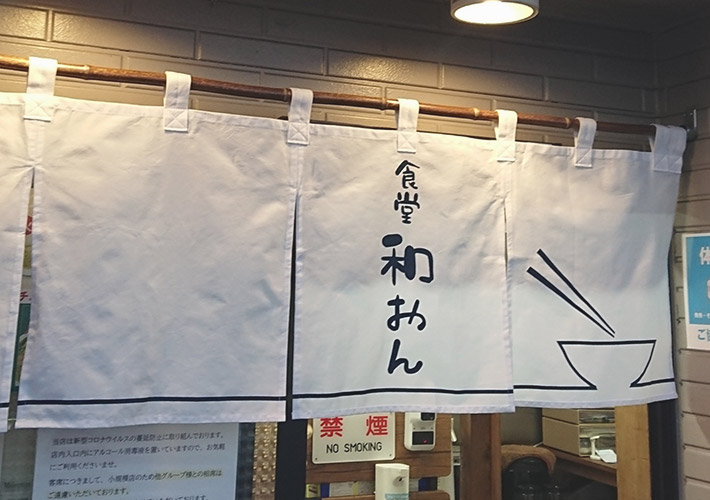 食堂
和おん
禁煙
NO SMOKING
当店は新型コロナウイルスの蔓延防止に取り組んでおります。
店内入口内にアルコール消毒液を置いていますので、お気軽
にご利用くださいませ。
客席につきまして、小規模店のため他グループ様との相席は
ご遠慮いただいております。